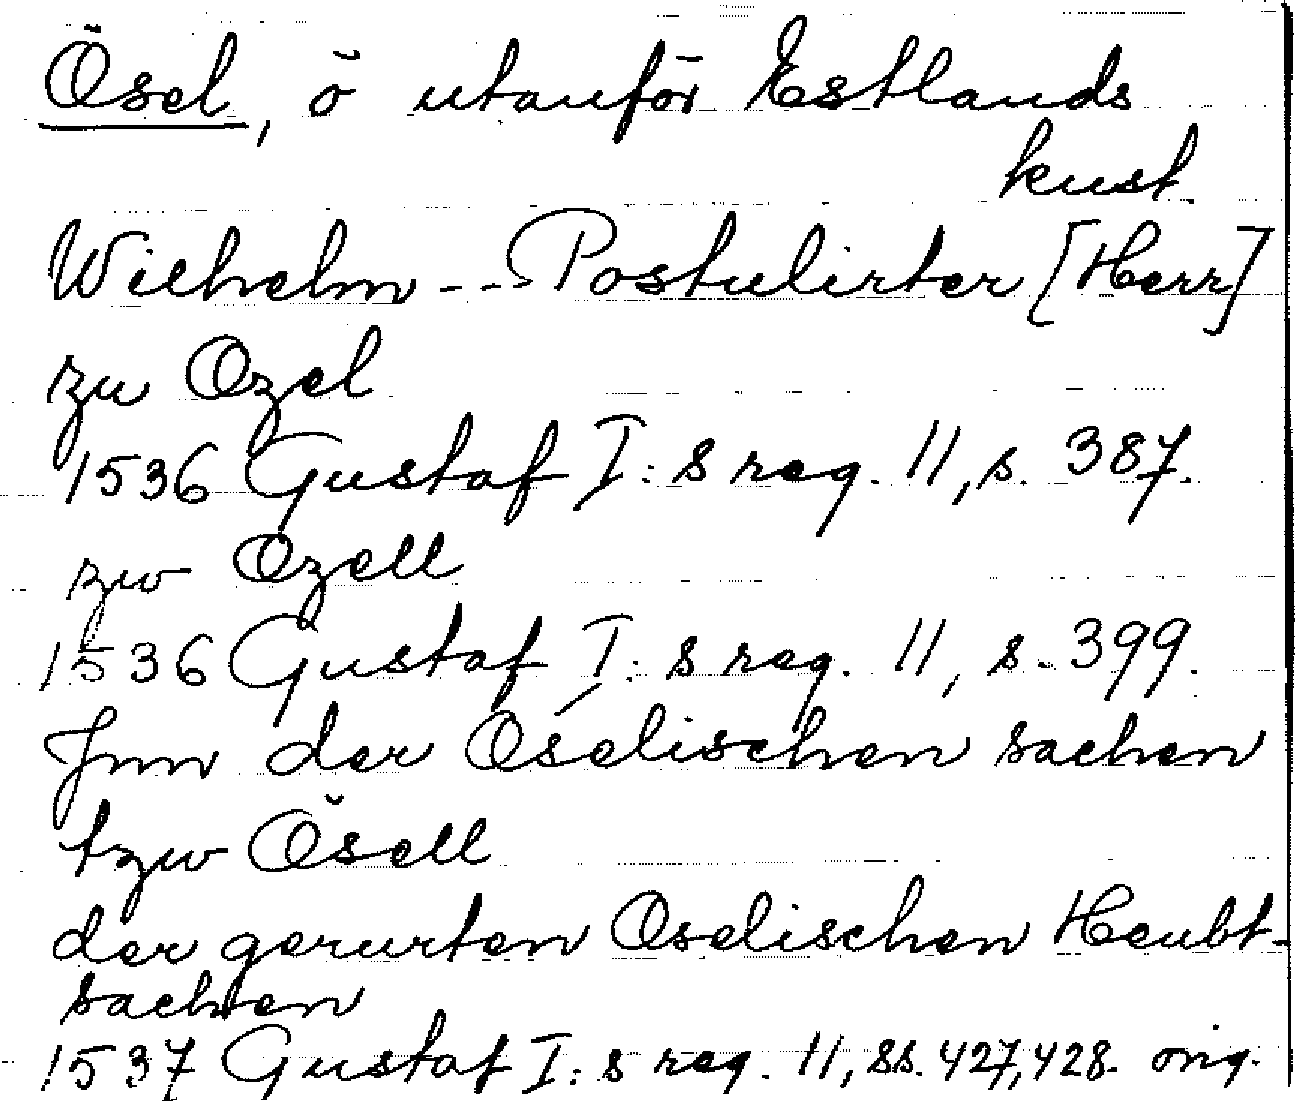 Ösel, ö utanför Estlands
kust
Wilhelm --- Postulirter [Herr]
zu Ozel
1536 Gustaf I:s reg. 11, s. 387.
zw Ozell
1536 Gustaf I:s reg. 11, s. 399.
Jnn der Oselischen sachen
tzw Ösell
der gerurten Oselischen Heubt-
sachen
1537 Gustaf I:s reg. 11, ss. 427, 428. orig.